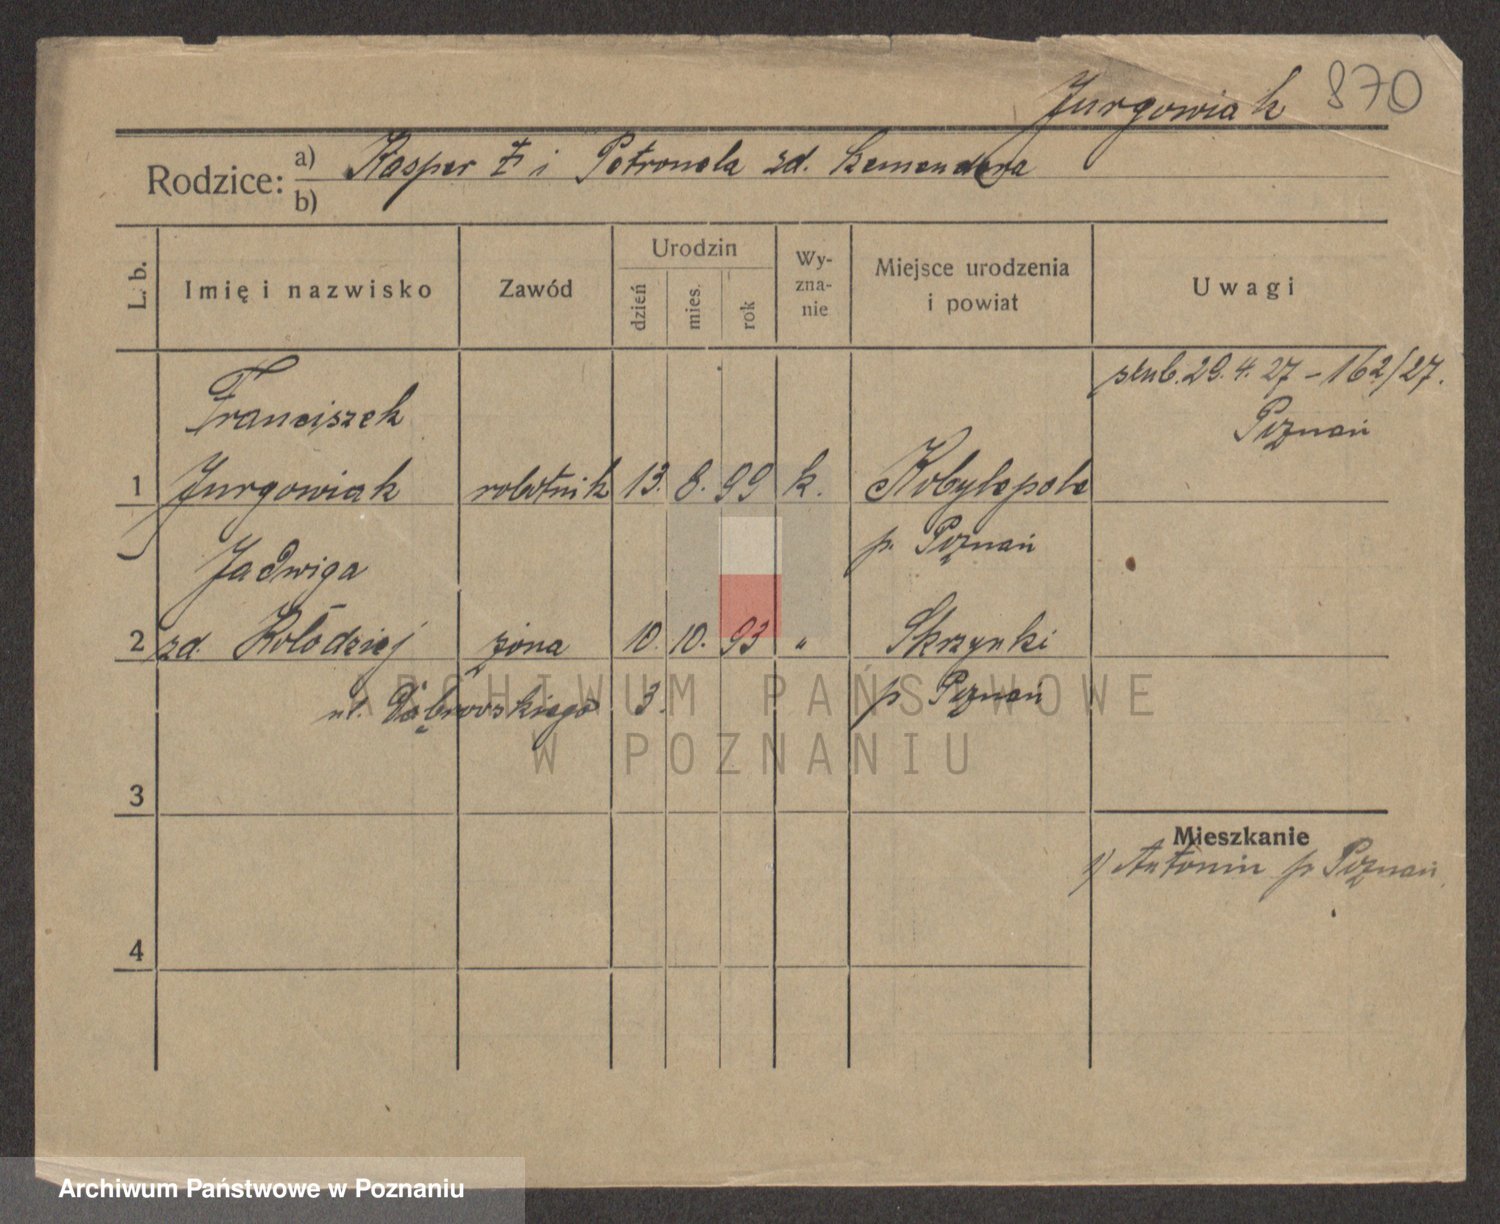 Jurgowiak 870
Rodzice: a) Kasper i Petronela zd.
b)
L. b. Imię i nazwisko Zawód Urodzin dzień mies. rok Wyznanie Miejsce urodzenia i powiat Uwagi
ślub. 29. 4. 27 – 162/27.
Poznań
Franciszek
1 Jurgowiak robotnik 13. 8. 99 k. Kobylepole
p. Poznań
Jadwiga
2 zd. Kołodziej żona 10. 10. 93 " Skrzynki
ul. Dąbrowskiego 3. p. Poznań
3
Mieszkanie
1) Antonin p. Poznań
4
ARCHIWUM PAŃSTWOWE
W POZNANIU
Archiwum Państwowe w Poznaniu